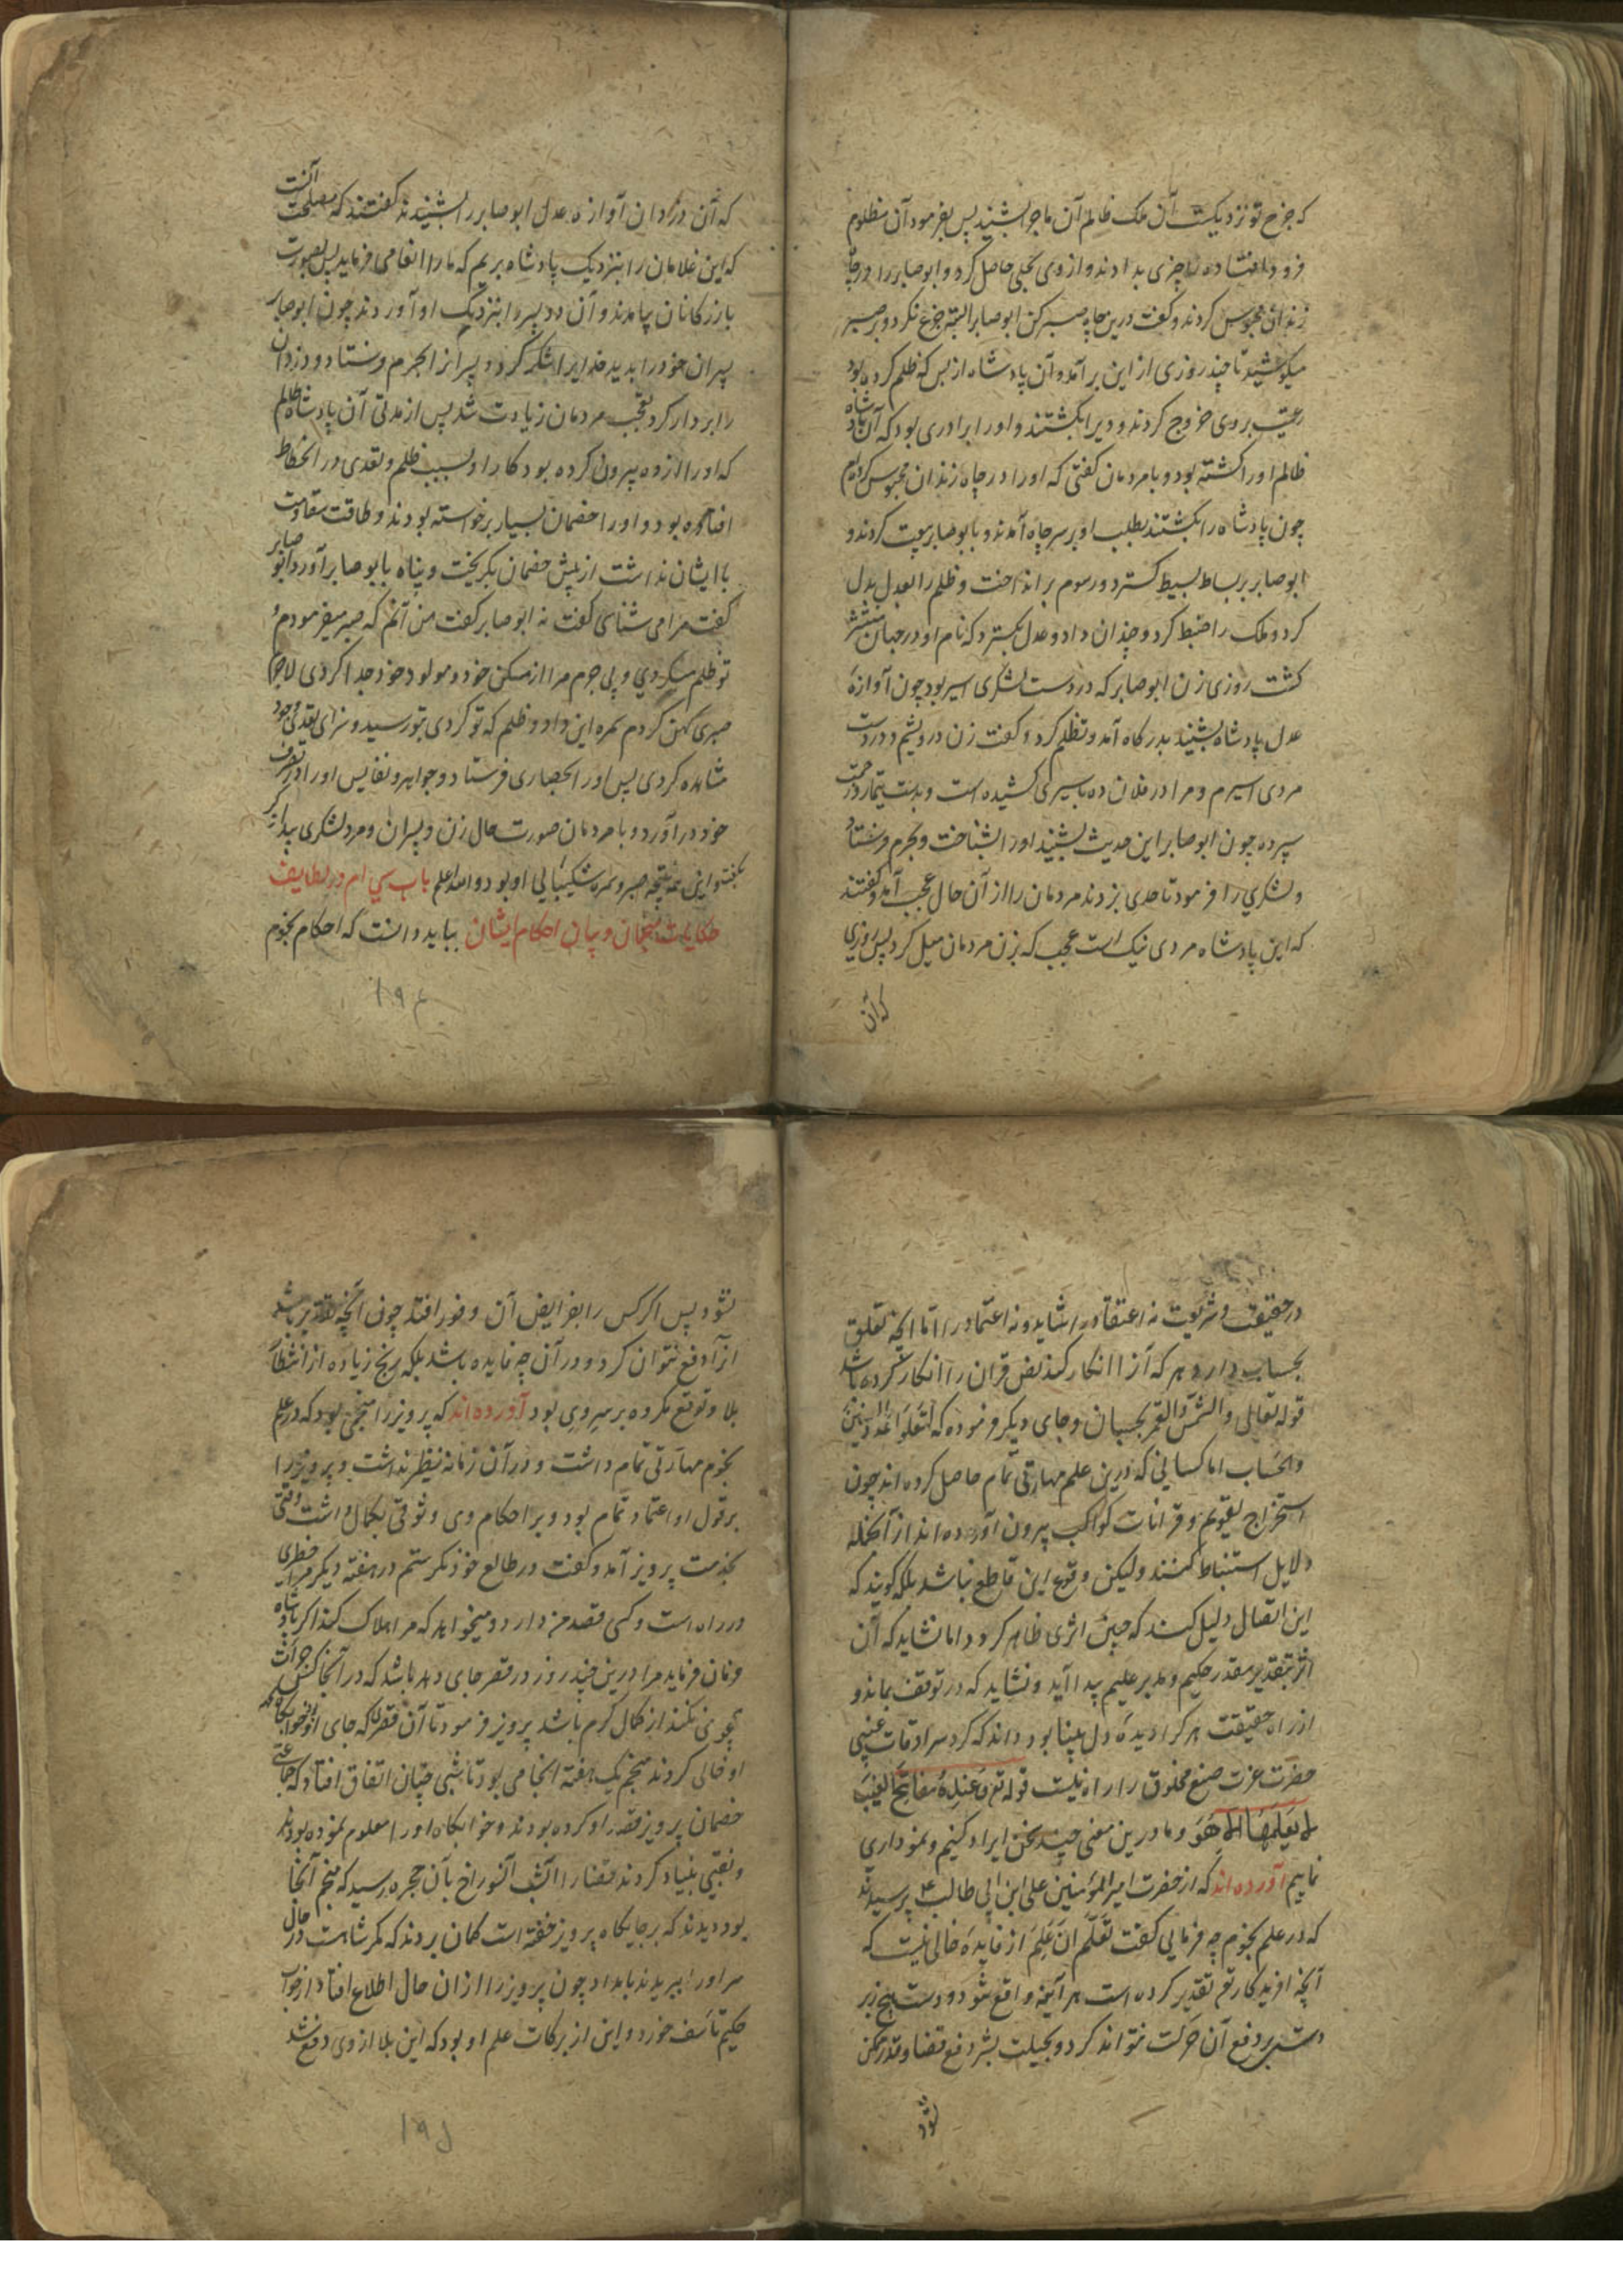 که جزع تو نزدیکست آن ملک ظالم آن ماجرا بشنید پس بفرمود آن مظلوم
فرود افتاده را چیزی بدادند و از وی بحلی حاصل کرد و ابوصابر را در چاه
زندان محبوس کردند و گفت درین چاه صبر کن ابوصابر البته جزع نکرد و بر صبر
میکوشید تا چند روزی از این برآمد و آن پادشاه از بس که ظلم کرده بود
رعیت بر وی خروج کردند و ویرا بکشتند و او را برادری بود که آن پادشاه
ظالم او را کشته بود و با مردمان گفتی که او را در چاه زندان محبوس کرده‌ام
چون پادشاه را بکشتند بطلب او بر سر چاه آمدند و با بوصابر بیعت کردند و
ابوصابر بر بساط بسیط گسترد و رسوم برانداخت و ظلم را بعدل بدل
کرد و ملک را ضبط کرد و چندان داد و عدل بگسترد که نام او در جهان منتشر
گشت روزی زن ابوصابر که در دست لشگری اسیر بود چون آوازهٔ
عدل پادشاه بشنید بدرگاه آمد و تظلم کرد و گفت زن درویشم و در دست
مردی اسیرم و مرا در فلان ده باسیری کشیده است و بدست تیمار و زحمت
سپرده چون ابوصابر این حدیث بشنید او را بشناخت و بحرم فرستاد
و لشگری را فرمود تا حدی بزدند مردمان را از آن حال عجب آمد و گفتند
که این پادشاه مردی نیک است عجب که بزن مردمان میل کرد پس روزی
که آن
که آن دزدان آوازه عدل ابوصابر را بشنیدند گفتند که مصلحت آنست
که این غلامان را بنزدیک پادشاه بریم که ما را انعامی فرماید پس بصورت
بازرگانان بیامدند و آن دو پسر را بنزدیک او آوردند چون ابوصابر
پسران خود را بدید خدایرا شکر کرد و پسرانرا بحرم فرستاد و دزدان
را بر دار کرد تعجب مردمان زیادت شد پس از مدتی آن پادشاه ظالم
که او را از ده بیرون کرده بود کار او بسبب ظلم و تعدی در انحطاط
افتاده بود و او را خصمان بسیار برخواسته بودند و طاقت مقاومت
با ایشان نداشت از پیش خصمان بگریخت و پناه با بوصابر آورد ابوصابر
گفت مرا می‌شناسی گفت نه ابوصابر گفت من آنم که صبر میفرمودم و
تو ظلم میکردی و بی جرم مرا از مسکن خود و مولود خود جدا کردی لاجرم
صبری که من کردم ثمره این داد و ظلم که تو کردی بتو رسید و سزای تعدی خود
مشاهده کردی پس او را بحصاری فرستاد و جواهر و نفایس او را در تصرف
خود درآورد و با مردمان صورت حال زن و پسران و مرد لشگری
بگفت و این همه نتیجه صبر و ثمره شکیبائی او بود والله اعلم باب سی ام در لطایف
حکایات منجمان و بیان احکام ایشان بباید دانست که احکام نجوم
۱۹۴
در حقیقت و شریعت نه اعتقاد را شاید و نه اعتماد را اما آنچه تعلق
بحساب دارد و هر که آنرا انکار کند نص قران را انکار کرده باشد
قوله تعالی والشمس والقمر بحسبان و جای دیگر فرموده که لتعلموا عدد السنین
والحساب اما کسانی که درین علم مهارتی تمام حاصل کرده‌اند چون
استخراج تقویم و قرانات کواکب بیرون آورده‌اند از آنجمله
دلایل استنباط کنند ولیکن وقوع این قاطع نباشد بلکه گویند که
این اتصال دلیل کند که چنین اثری ظاهر گردد اما نشاید که آن
اثر بتقدیر مقدر حکیم و مدبر علیم پیدا آید و نشاید که در توقف بماند و
از راه حقیقت هر کرا دیدهٔ دل بینا بود داند که گرد سرادقات غیبی
حضرت عزت صنع مخلوق را راه نیست قوله تع و عنده مفاتح الغیب
لا یعلمها الا هو و ما درین معنی چند سخن ایراد کنیم و نموداری
نماییم آورده‌اند که از حضرت امیرالمؤمنین علی ابن ابی طالب ع پرسیدند
که در علم نجوم چه فرمائی گفت تعلم ان علم از فایده خالی نیست که
آنچه افریدگار تع تقدیر کرده است هر آینه واقع شود و دست هیچ زبر
دستی بر دفع آن حرکت نتواند کرد و بحیلت بشر دفع قضا و قدر ممکن
نشود
نشود پس اگر کس را بفرایض آن وقور افتد چون آنچه تقدیر باشد
ازآ دفع نتوان کرد و در آن چه فایده باشد بلکه رنج زیاده از انتظار
بلا و توقع مکروه بر سروی بود آورده‌اند که پرویز را منجمی بود که در علم
نجوم مهارتی تمام داشت و در آن زمانه نظیر نداشت و پرویز را
بر قول او اعتماد تمام بود و بر احکام وی وثوقی بکمال داشت وقتی
بخدمت پرویز آمد و گفت در طالع خود نگرستم در هفته دیگر مرا خطری
در راه است و کسی قصد من دارد و میخواهد که مرا هلاک کند اگر پادشاه
فرمان فرماید مرا درین چند روز در قصر جای دهد باشد که در آنجا کس جرات
نکند از کمال کرم باشد پرویز فرمود تا آن قصر را که جای او خوابگاه
او خالی کردند منجم یک هفته آنجا می بود تا شبی چنان اتفاق افتاد که جماعتی
خصمان پرویز قصد او کرده بودند و خوابگاه او را معلوم نموده بودند
و نقبی بنیاد کردند قضا را آنشب آنسوراخ بآن حجره رسید که منجم آنجا
بود دیدند که بر جایگاه پرویز خفته است گمان بردند که مگر شاهست در حال
سر او را ببریدند بامداد چون پرویز را از ان حال اطلاع افتاد از جواب
حکیم تأسف خورد و این از برکات علم او بود که این بلا از وی دفع شد